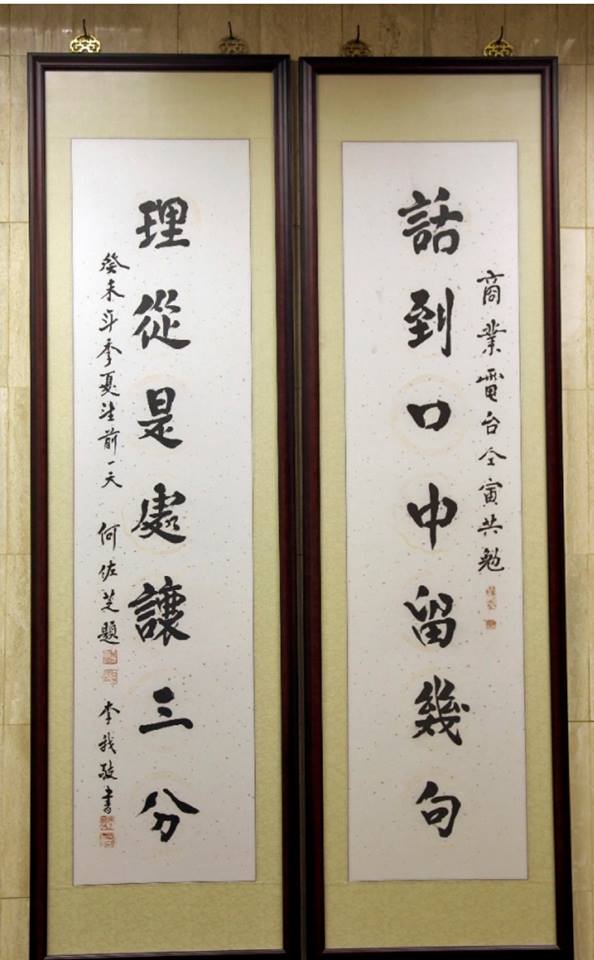 商業電台仝寅共勉
話到口中留幾句
理從是處讓三分
癸未年季夏生前一天 何佐芝題 李我敬書